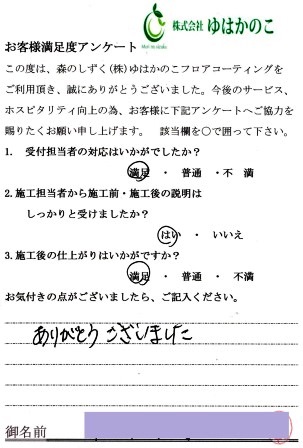 株式会社 ゆはかのこ
お客様満足度アンケート
この度は、森のしずく(株)ゆはかのこフロアコーティングを
ご利用頂き、誠にありがとうございました。今後のサービス、
ホスピタリティ向上の為、お客様に下記アンケートへご協力を
賜りたくお願い申し上げます。 該当欄を〇で囲って下さい。
1. 受付担当者の対応はいかがでしたか?
満足 ・ 普通 ・不 満
2.施工担当者から施工前・施工後の説明は
しっかりと受けましたか?
はい ・ いいえ
3.施工後の仕上がりはいかがですか?
満足 ・ 普通 ・ 不満
お気付きの点がございましたら、ご記入ください。
ありがとうございました
御名前